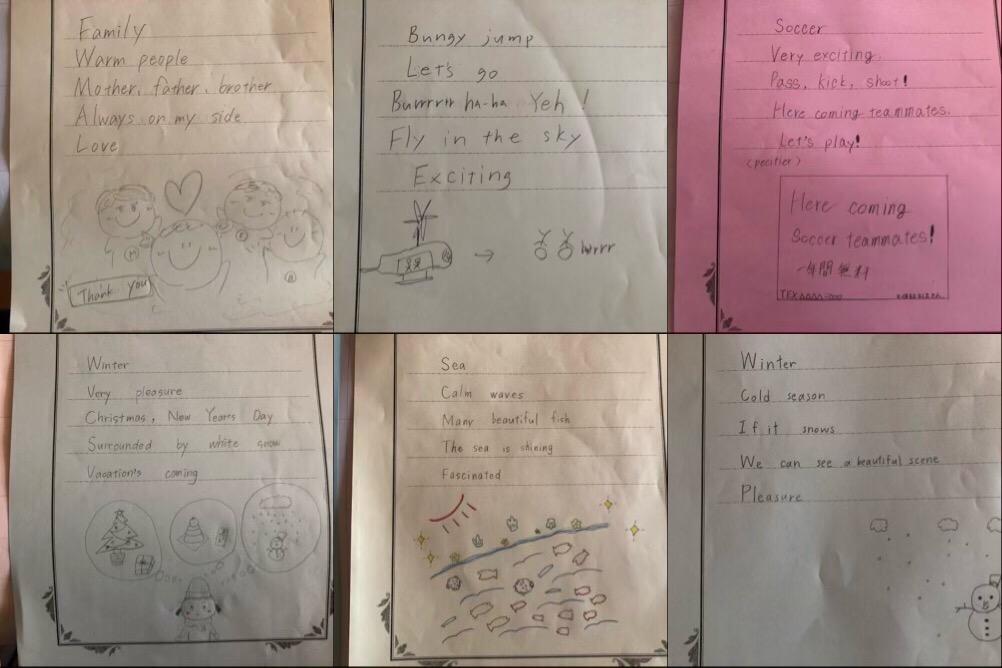 Family
Warm people
Mother, father, brother
Always on my side
Love
Thank you
Bungy jump
Let's go
Burrrrr ha-ha Yeh !
Fly in the sky
Exciting
brrrr
Soccer
Very exciting.
Pass, kick, shoot!
Here coming teammates.
Let's play!
Here coming
Soccer teammates!
一年間無料
Winter
Very pleasure
Christmas, New Years Day
Surrounded by white snow
Vacation's coming
Sea
Calm waves
Many beautiful fish
The sea is shining
Fascinated
Winter
Cold season
If it snows
We can see a beautiful scene
Pleasure